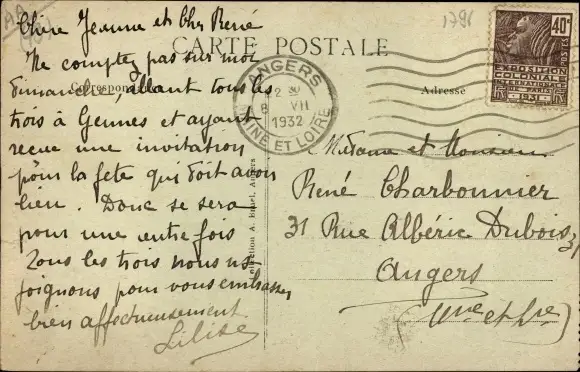 Chère Jeanne et Cher René
Ne comptez pas sur moi
dimanche, allant tous les
trois à Gennes et ayant
reçue une invitation
pour la fete qui doit avoir
lieu. Donc se sera
pour une autre fois
Tous les trois nous nous
joignons pour vous embrasser
bien affectueusement
Lilise
CARTE POSTALE
Correspondance
Adresse
Collection A. Bruel, Angers
1796
ANGERS
12 30
8 VII
1932
MAINE ET LOIRE
40c
POSTES
EXPOSITION
COLONIALE
INTERNATIONALE
PARIS
1931
Madame et Monsieur
René Charbonnier
31 Rue Albéric Dubois 31
Angers
(Mne et Lre)